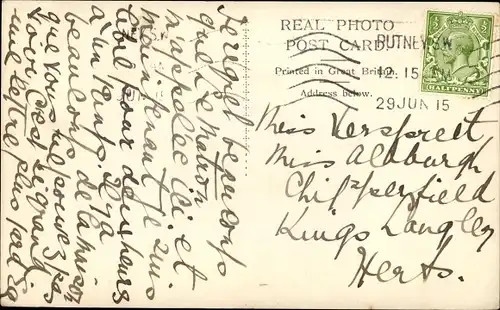 REAL PHOTO
POST CARD
Printed in Great Britain
Address below.
PUTNEY.S.W
12.15
29 JUN 15
HALFPENNY
Miss Verspreet
Miss Aldburgh
Chipperfield
Kings Langley
Herts.
Je regret beaucoup
que le Matron
m'appelée ici et
maintenant je suis
pour deux heures
à un temps. Il y a
beaucoup de la
que vous ne pouvez pas
voir. C'est si grand.
une lettre plus tard